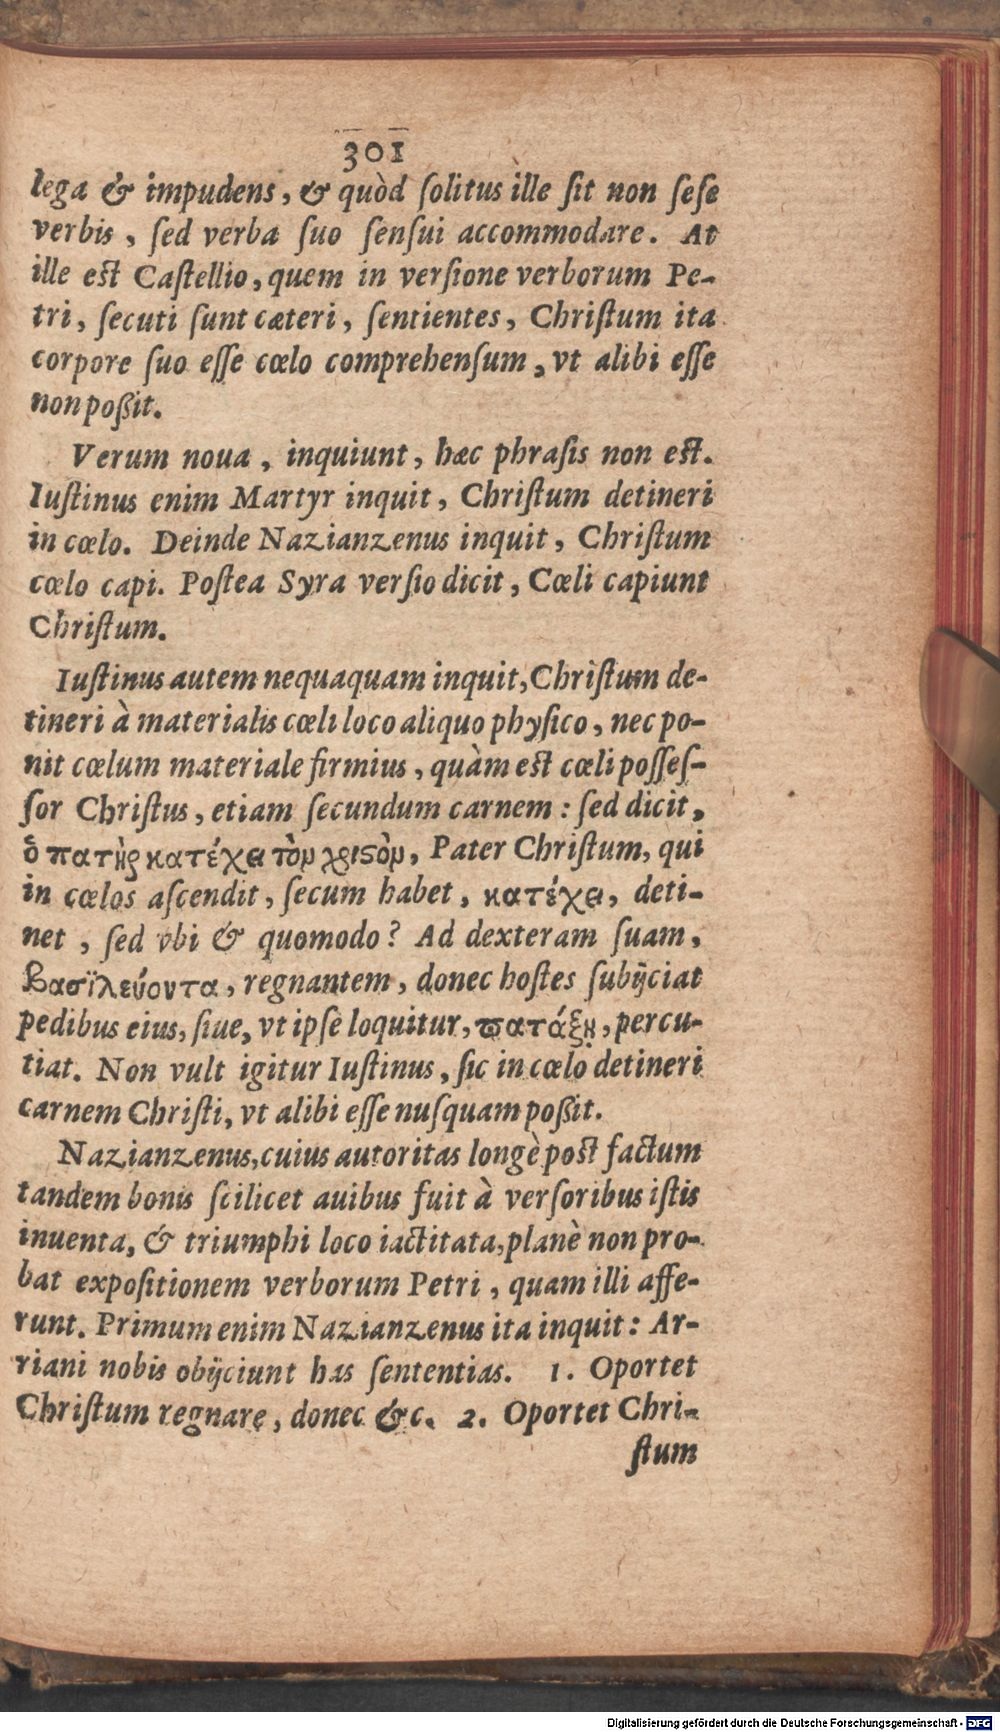 301
lega & impudens, & quòd ſolitus ille ſit non ſeſe
verbis, ſed verba ſuo ſenſui accommodare. At
ille eſt Caſtellio, quem in verſione verborum Pe-
tri, ſecuti ſunt cæteri, ſentientes, Chriſtum ita
corpore ſuo eſſe cœlo comprehenſum, vt alibi eſſe
non poßit.
Verum noua, inquiunt, hæc phraſis non eſt.
Iuſtinus enim Martyr inquit, Chriſtum detineri
in cœlo. Deinde Nazianzenus inquit, Chriſtum
cœlo capi. Poſtea Syra verſio dicit, Cœli capiunt
Chriſtum.
Iuſtinus autem nequaquam inquit, Chriſtum de-
tineri à materialis cœli loco aliquo phyſico, nec po-
nit cœlum materiale firmius, quàm eſt cœli poſſeſ-
ſor Chriſtus, etiam ſecundum carnem: ſed dicit,
ὁ πατὴρ κατέχει τὸν χριϛὸν, Pater Chriſtum, qui
in cœlos aſcendit, ſecum habet, κατέχει, deti-
net, ſed vbi & quomodo? Ad dexteram ſuam,
βασϊλεύοντα, regnantem, donec hoſtes ſubijciat
pedibus eius, ſiue, vt ipſe loquitur, πατάξῃ, percu-
tiat. Non vult igitur Iuſtinus, ſic in cœlo detineri
carnem Chriſti, vt alibi eſſe nuſquam poßit.
Nazianzenus, cuius autoritas longè poſt factum
tandem bonis ſcilicet auibus fuit à verſoribus iſtis
inuenta, & triumphi loco iactitata, planè non pro-
bat expoſitionem verborum Petri, quam illi affe-
runt. Primum enim Nazianzenus ita inquit: Ar-
riani nobis obijciunt has ſententias. 1. Oportet
Chriſtum regnare, donec &c. 2. Oportet Chri-
ſtum
Digitalisierung gefördert durch die Deutsche Forschungsgemeinschaft - DFG